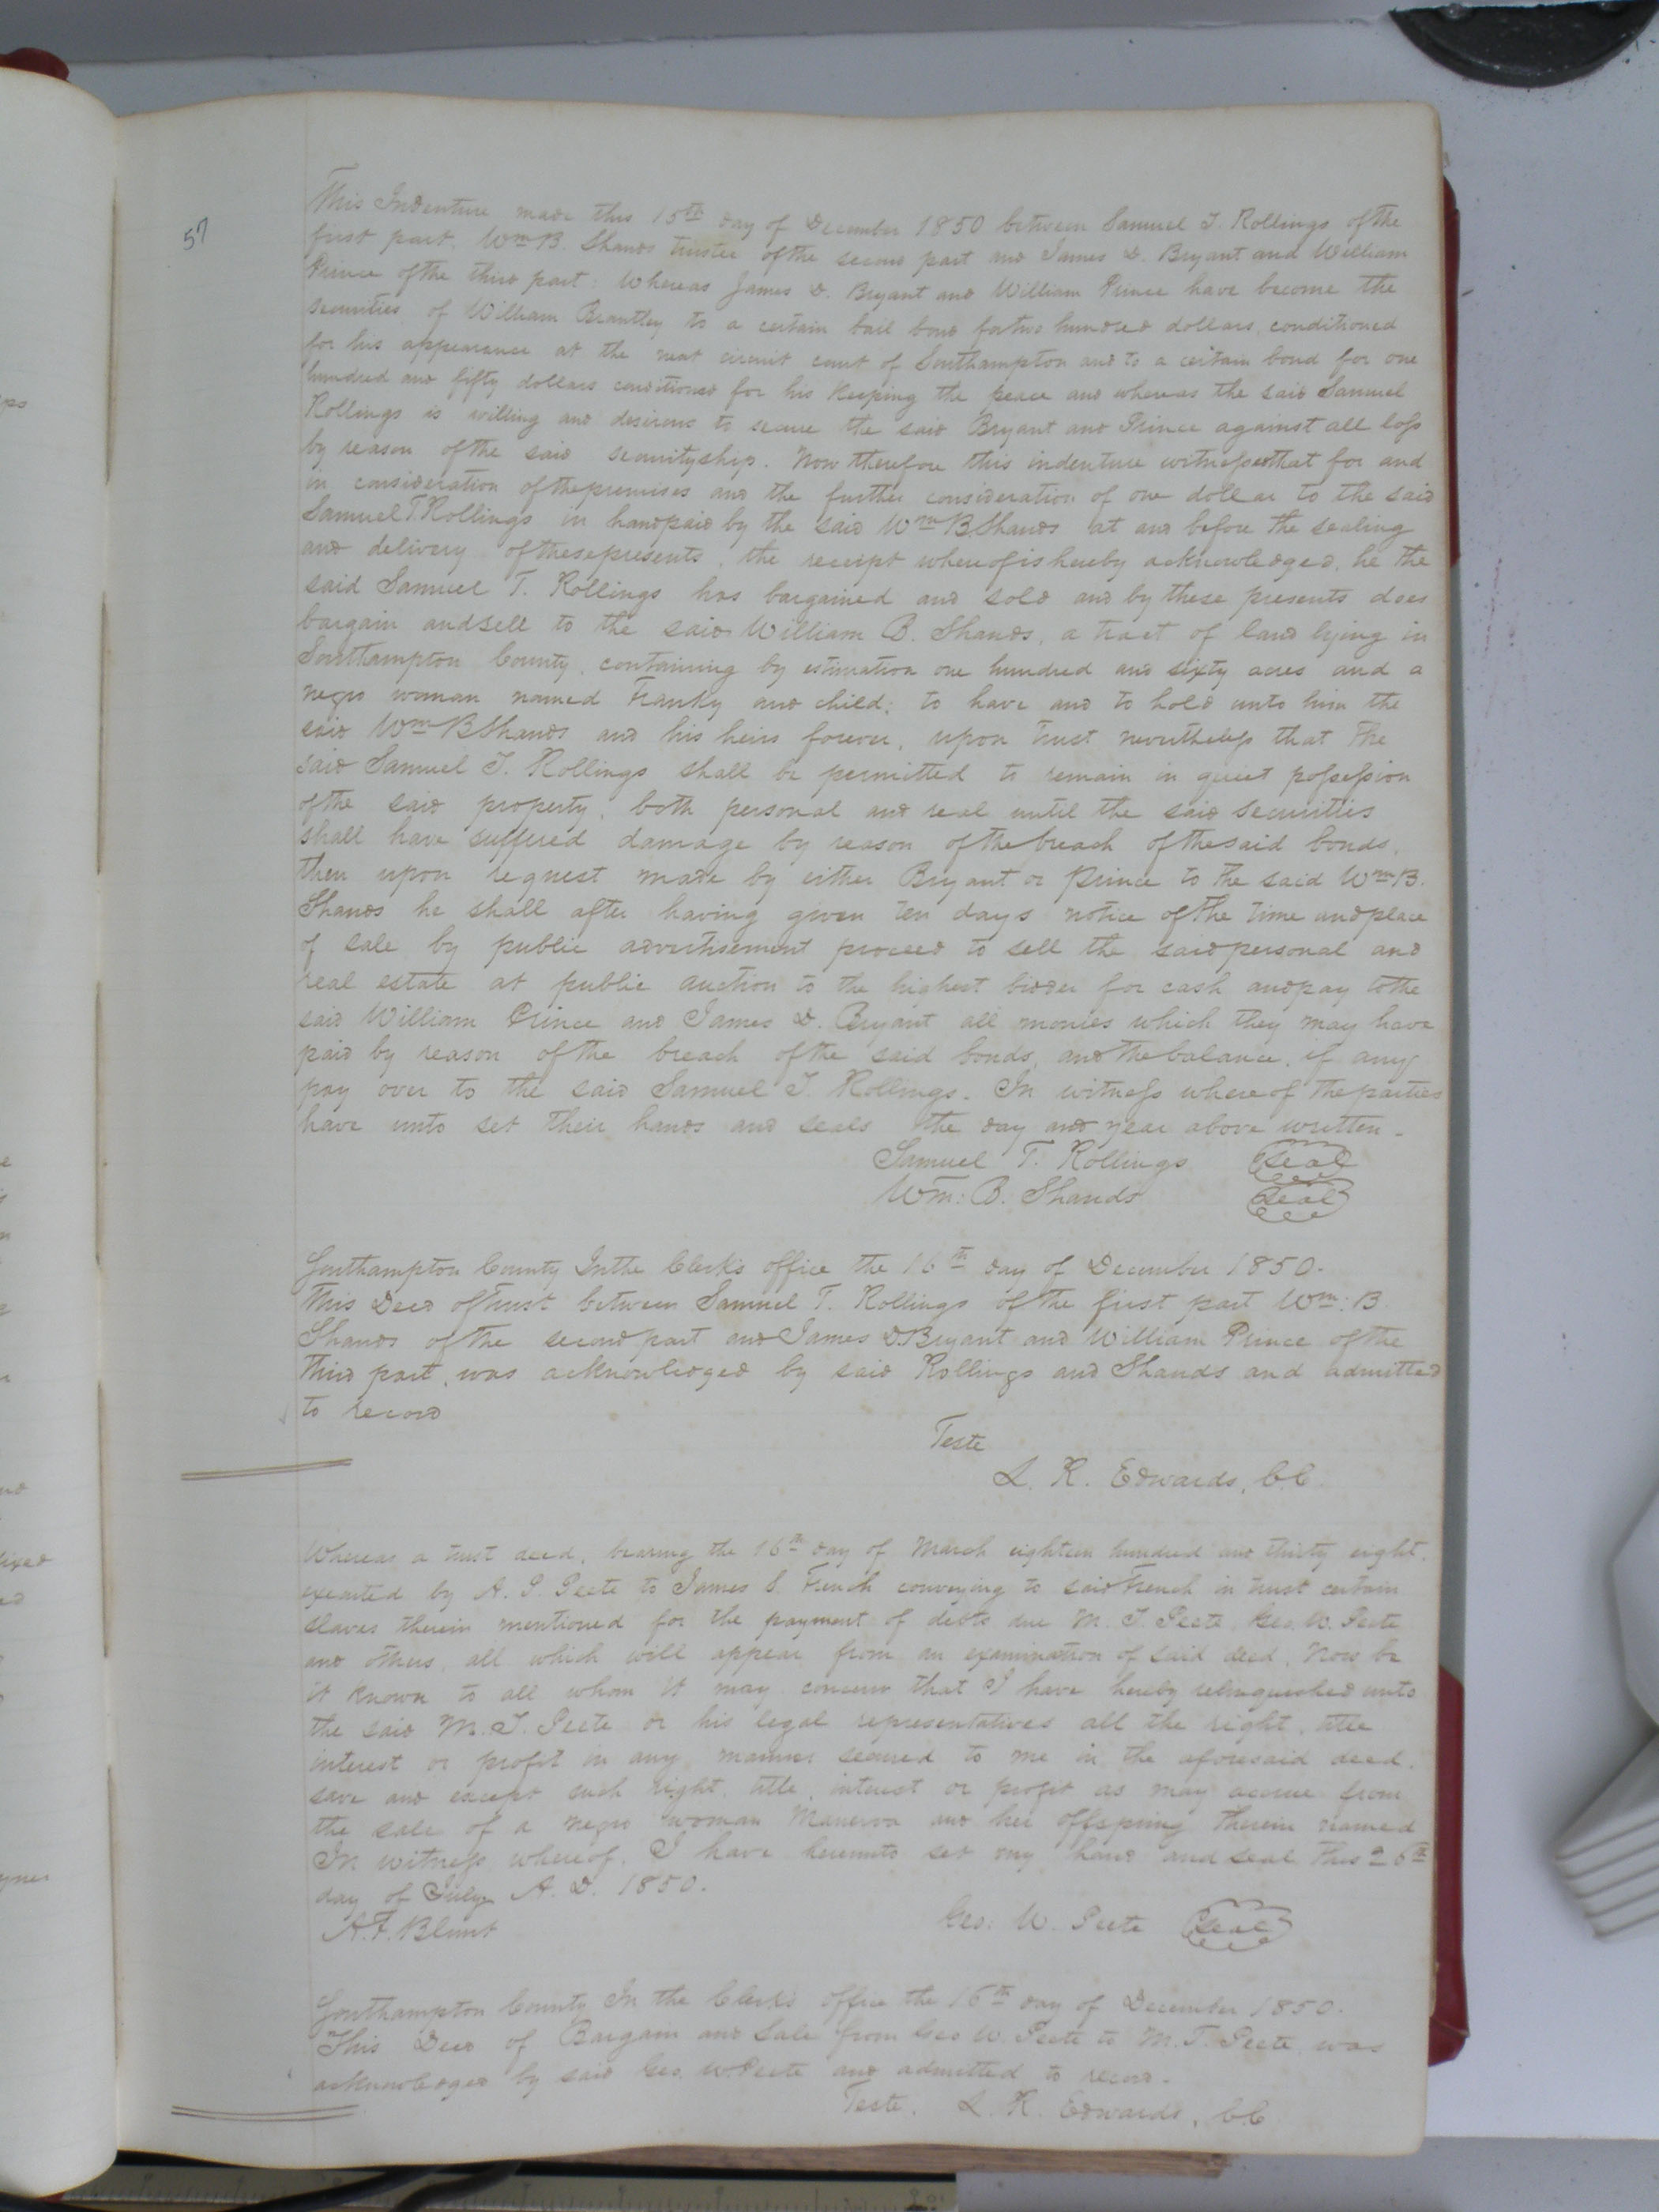 57
This Indenture made this 15th day of December 1850 between Samuel T. Rollings of the
first part, Wm B. Shands trustee of the second part and James D. Bryant and William
Prince of the third part: Whereas James D. Bryant and William Prince have become the
securities of William Brantley to a certain bail bond for two hundred dollars, conditioned
for his appearance at the next circuit court of Southampton and to a certain bond for one
hundred and fifty dollars conditioned for his keeping the peace and whereas the said Samuel
Rollings is willing and desirous to secure the said Bryant and Prince against all loss
by reason of the said securityship. Now therefore this indenture witnesseth that for and
in consideration of the premises and the further consideration of one dollar to the said
Samuel T. Rollings in hand paid by the said Wm B. Shands at and before the sealing
and delivery of these presents, the receipt whereof is hereby acknowledged, he the
said Samuel T. Rollings has bargained and sold and by these presents does
bargain and sell to the said William B. Shands, a tract of land lying in
Southampton County, containing by estimation one hundred and sixty acres and a
negro woman named Franky and child; to have and to hold unto him the
said Wm B Shands and his heirs forever, upon trust nevertheless that the
said Samuel T. Rollings shall be permitted to remain in quiet possession
of the said property, both personal and real until the said securities
shall have suffered damage by reason of the breach of the said bonds,
then upon request made by either Bryant or Prince to the said Wm B.
Shands he shall after having given ten days notice of the time and place
of sale by public advertisement proceed to sell the said personal and
real estate at public auction to the highest bidder for cash and pay to the
said William Prince and James D. Bryant all monies which they may have
paid by reason of the breach of the said bonds, and the balance, if any
pay over to the said Samuel T. Rollings. In witness whereof the parties
have unto set their hands and seals the day and year above written.
Samuel T. Rollings Seal
Wm: B. Shands Seal
Southampton County In the Clerk's office the 16th day of December 1850.
This Deed of Trust between Samuel T. Rollings of the first part Wm: B.
Shands of the second part and James D. Bryant and William Prince of the
third part, was acknowledged by said Rollings and Shands and admitted
to record
Teste
L. R. Edwards, C.C.
Whereas a trust deed, bearing the 16th day of March eighteen hundred and thirty eight,
executed by A. P. Peete to James S. French conveying to said French in trust certain
slaves therein mentioned for the payment of debts due M. T. Peete, Geo. W. Peete
and others, all which will appear from an examination of said deed. Now be
it known to all whom it may concern that I have hereby relinquished unto
the said M. T. Peete or his legal representatives all the right, title
interest or profit in any manner secured to me in the aforesaid deed,
save and except such right, title, interest or profit as may accrue from
the sale of a negro woman Manerva and her offspring therein named
In witness whereof, I have hereunto set my hand and seal this 6th
day of July A. D. 1850.
A. F. Blunt Geo: W. Peete Seal
Southampton County In the Clerk's office the 16th day of December 1850.
This Deed of Bargain and Sale from Geo W. Peete to M. T. Peete was
acknowledged by said Geo. W. Peete and admitted to record.
Teste. L. R. Edwards, C.C.